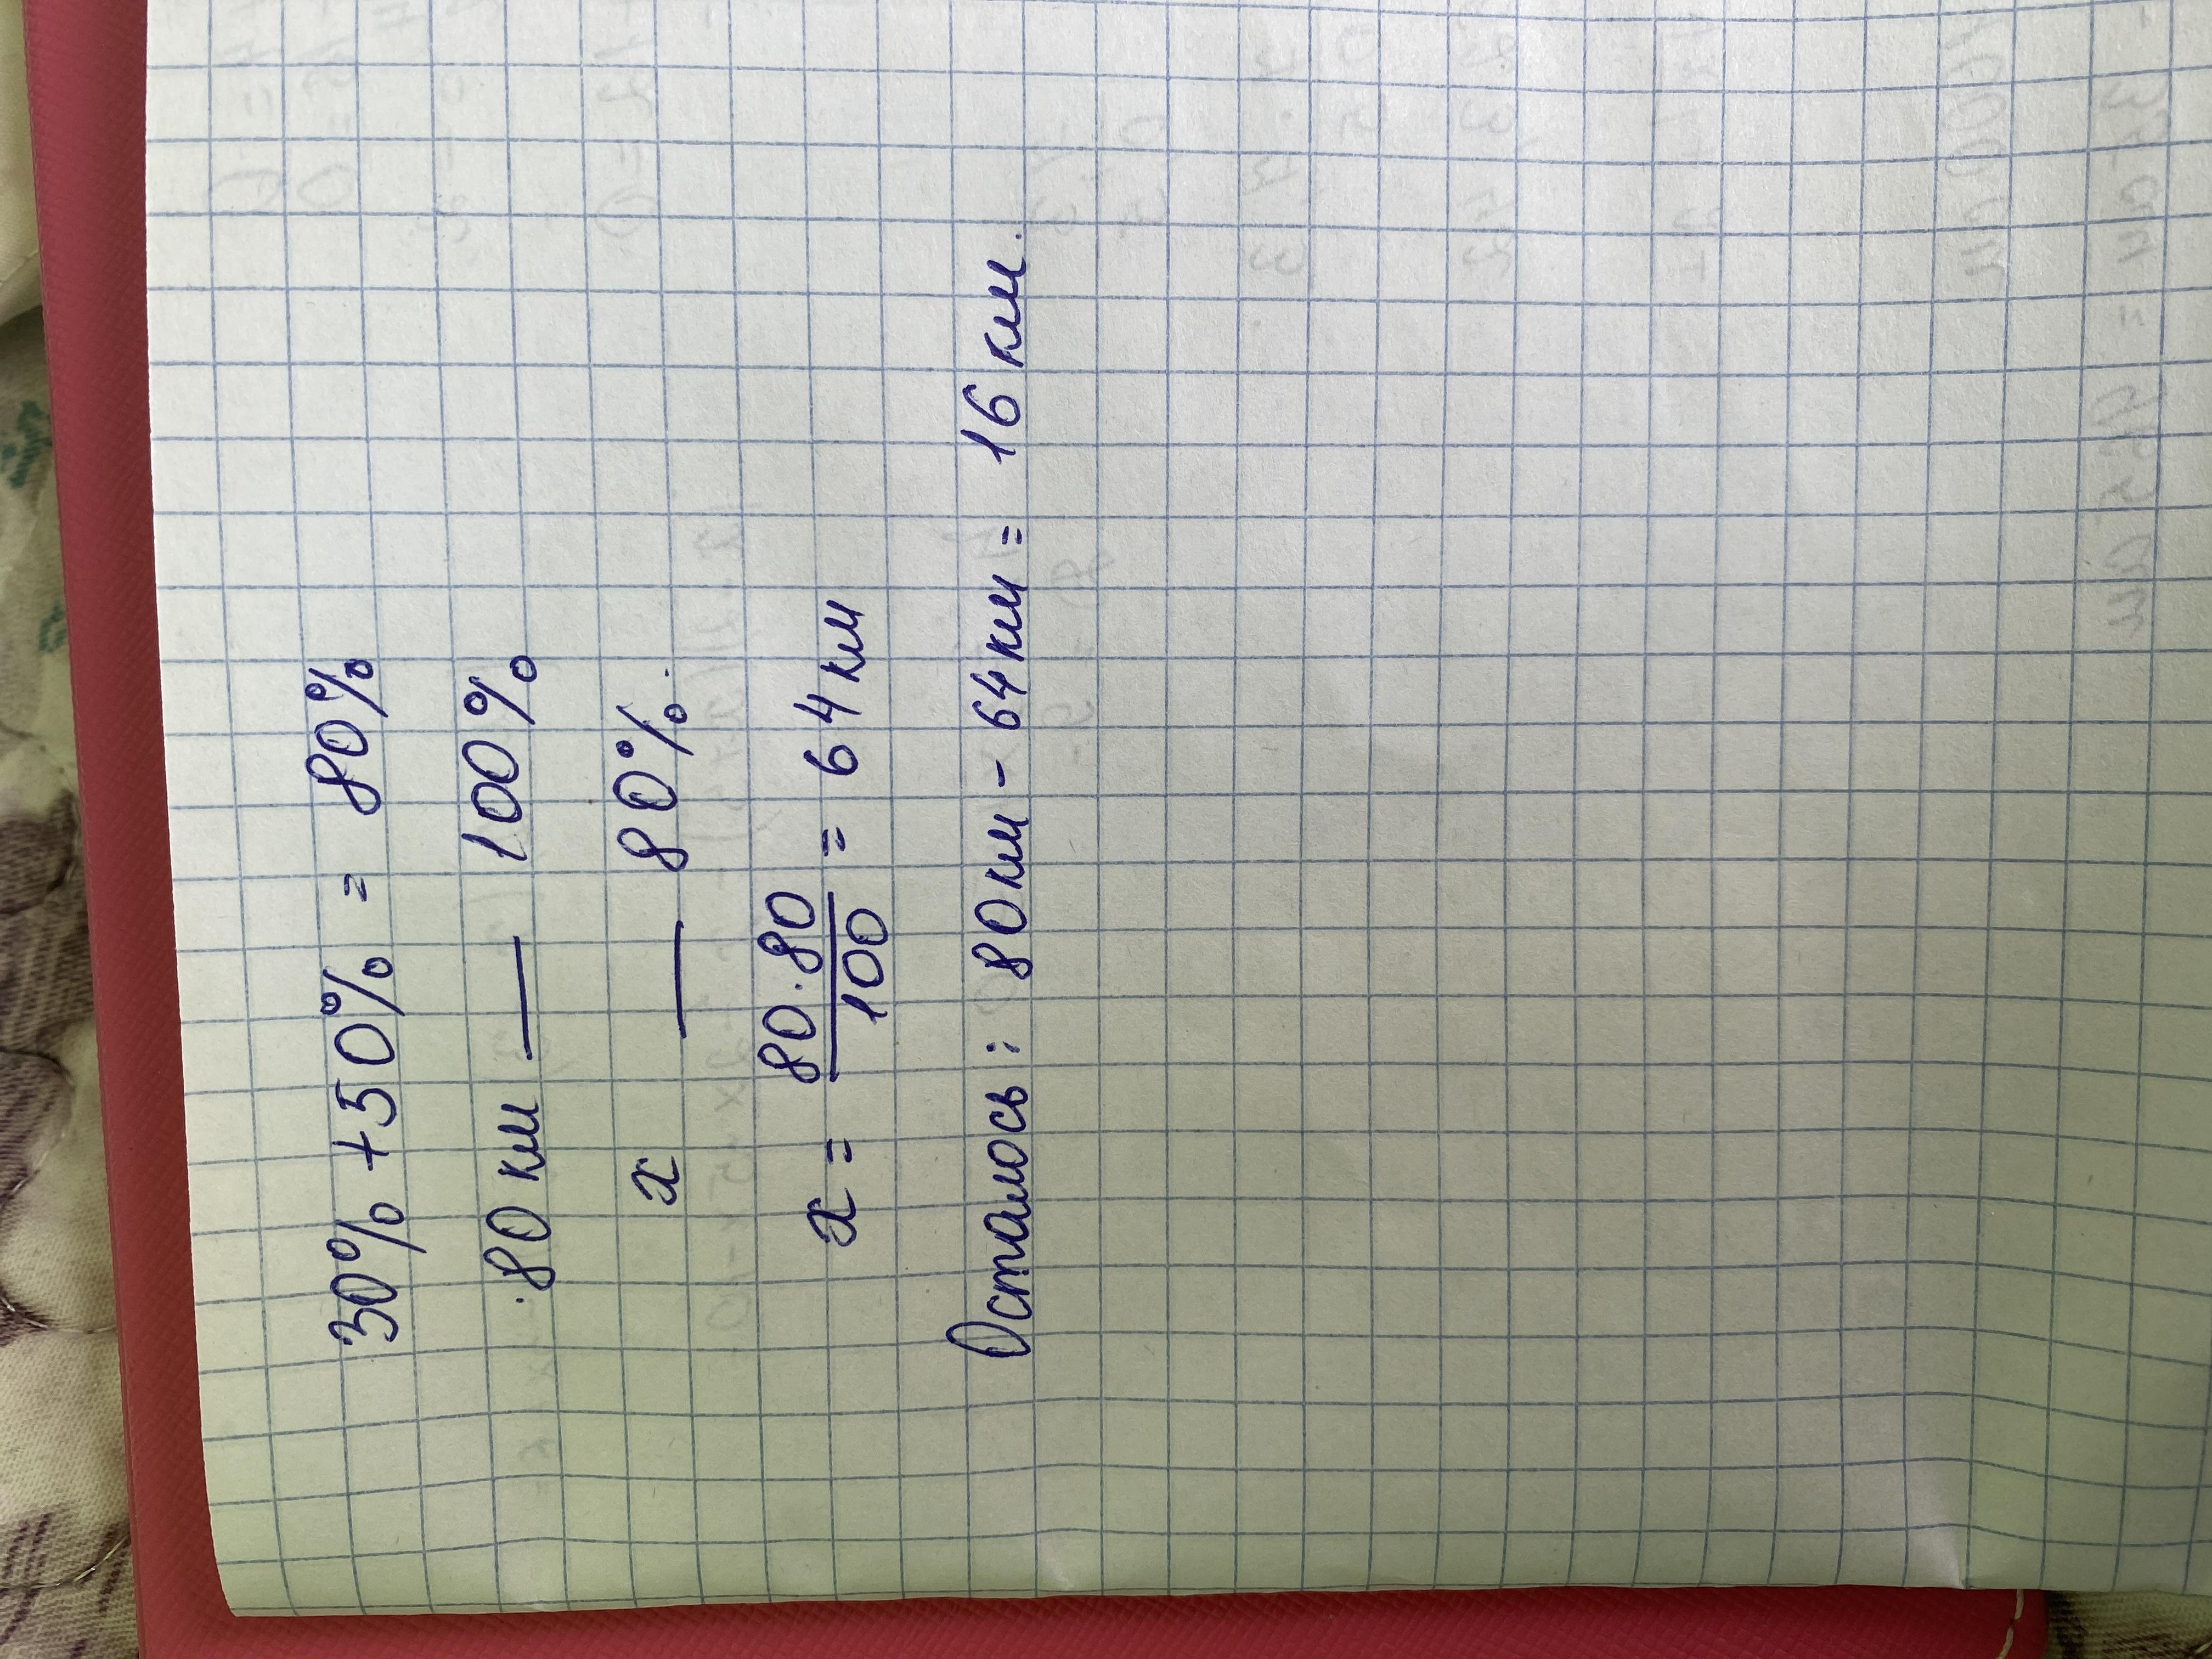 30% + 50% = 80%
80 км — 100%
x — 80%.
x = 80·80/100 = 64 км
Осталось: 80 км - 64 км = 16 км.